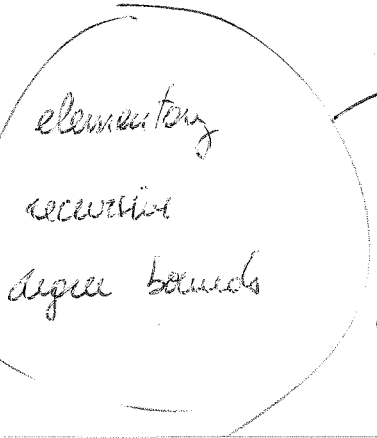 elementary
recursive
degree bounds